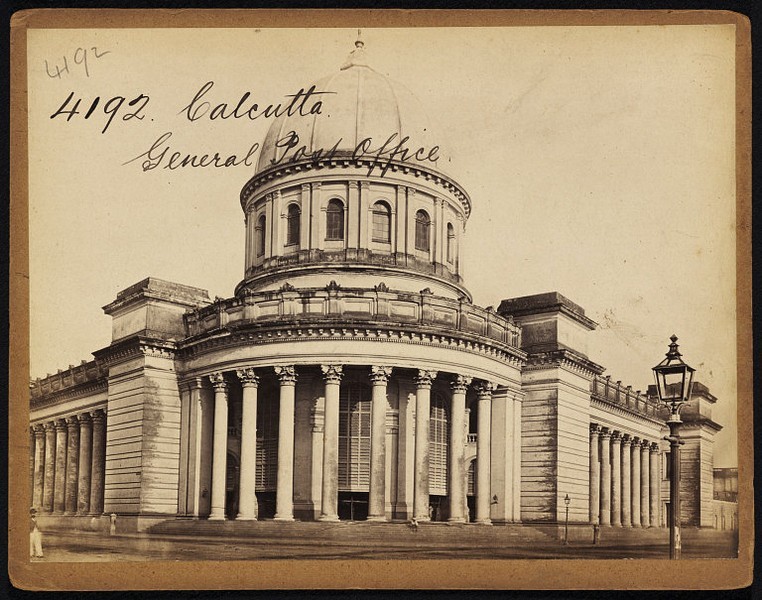 4192
4192. Calcutta.
General Post Office.